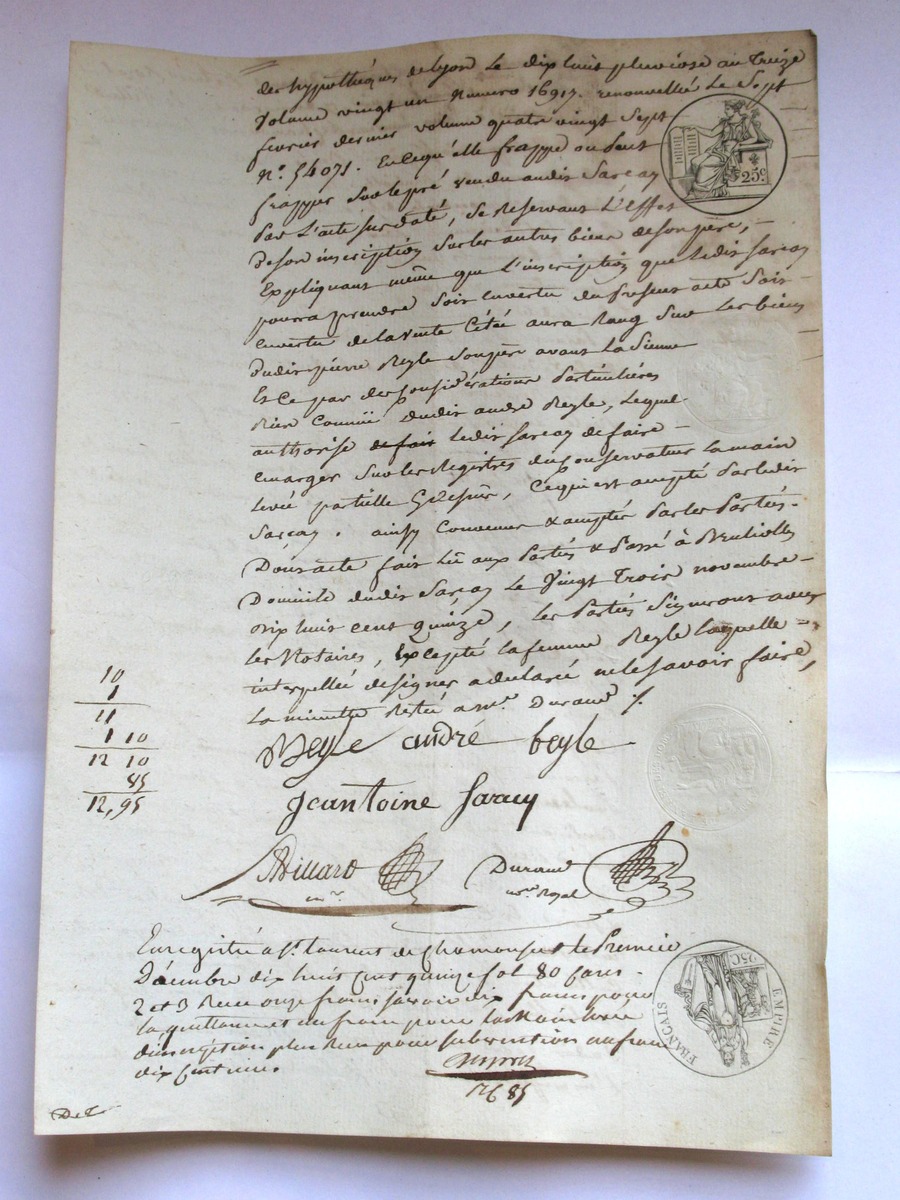 des hypothèques de lyon le dix huit pluviose an Treize
Volume vingt un Numero 16917. renouvellée Le Sept
fevrier dernier volume quatre vingt Sept
N.° 54071. En ce qu'elle frappe ou peut
frapper Sur le pré vendu audit Sarcay
par L'acte sus daté, Se Reservant L'effet
de son inscription Sur les autres biens de son père, –
Expliquant même que L'inscription que ledit Sarcay
pourra prendre Soit en vertu du present acte Soit
en vertu de la vente Citée aura Rang Sur Les biens
dudit pierre Reyle Son père avant La Sienne
Et Ce par des Considérations Particulières
dudit andré Reyle, Lequel
authorise de fair ledit Sarcay de faire –
emarger Sur les Registres du Conservateur La main
levée partielle, Ce qui est accepté Par ledit
Sarcay. ainsy Convenu & accepté Par les Parties.
Dont acte fait Lû aux Parties & Passé à
Domicile dudit Sarcay Le Vingt Trois novembre –
dix huit cent Quinze, Les Parties Signeront avec
les Notaires, Excepté la femme Reyle laquelle –
interpellée de signer a declaré ne le savoir faire,
La minutte Restée a M.e Durand ./.
25.C
10
1
11
1 10
12 10
85
12,95
Reyle andré Reyle
Jeantoine Sarcay
Billard
n.re
Durand
n.re Royal
Enregistré a S.t Laurent de Chamousset le Premier
Décembre dix huit Cent quinze fol 80 Cases
2 et 3 Reçu onze francs savoir dix francs pour
la quittance et un franc pour la Main levée
d'inscription plus Reçu pour subvention un franc
dix Centimes.
25C
EMPIRE FRANÇAIS